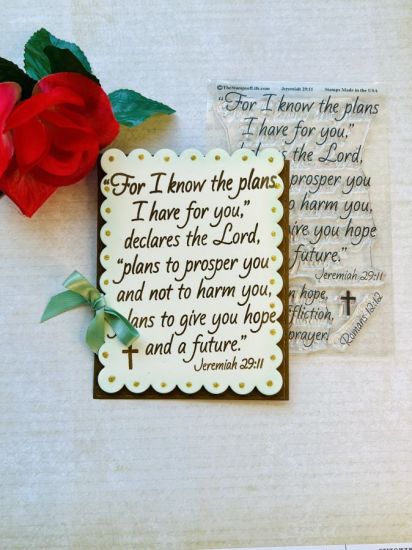 “For I know the plans
I have for you,”
declares the Lord,
“plans to prosper you
and not to harm you,
plans to give you hope
and a future.”
Jeremiah 29:11
©TheStampsofLife.com Jeremiah 29:11 Stamps Made in the USA
“For I know the plans
I have for you,”
declares the Lord,
prosper you
to harm you,
give you hope
future.”
Jeremiah 29:11
in hope,
affliction,
prayer.
Romans 12:12